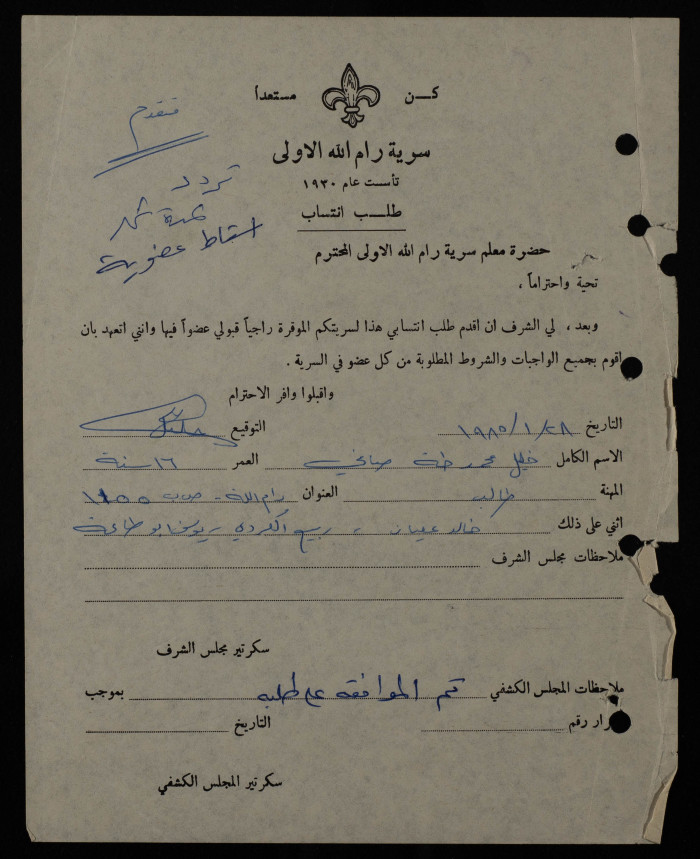 كن مستعداً
متقدم
سرية رام الله الاولى
تأسست عام ١٩٣٠
تردد
طلب انتساب
لمدة شهر
اسقاط عضوية
حضرة معلم سرية رام الله الاولى المحترم
تحية واحتراماً ،
وبعد ، لي الشرف ان اقدم طلب انتسابي هذا لسريتكم الموقرة راجياً قبولي عضواً فيها وانني اتعهد بان
اقوم بجميع الواجبات والشروط المطلوبة من كل عضو في السرية .
واقبلوا وافر الاحترام
التاريخ ١٩٨٥/١/٢٨ التوقيع
الاسم الكامل خليل محمد طه صافي العمر ١٦ سنة
المهنة طالب العنوان رام الله - ص.ب ١١٥٥
اثني على ذلك خالد عليان ، ربيع الكردي ، يوسف ابو طاعة
ملاحظات مجلس الشرف
سكرتير مجلس الشرف
ملاحظات المجلس الكشفي تم الموافقه على طلبه بموجب
رار رقم التاريخ
سكرتير المجلس الكشفي